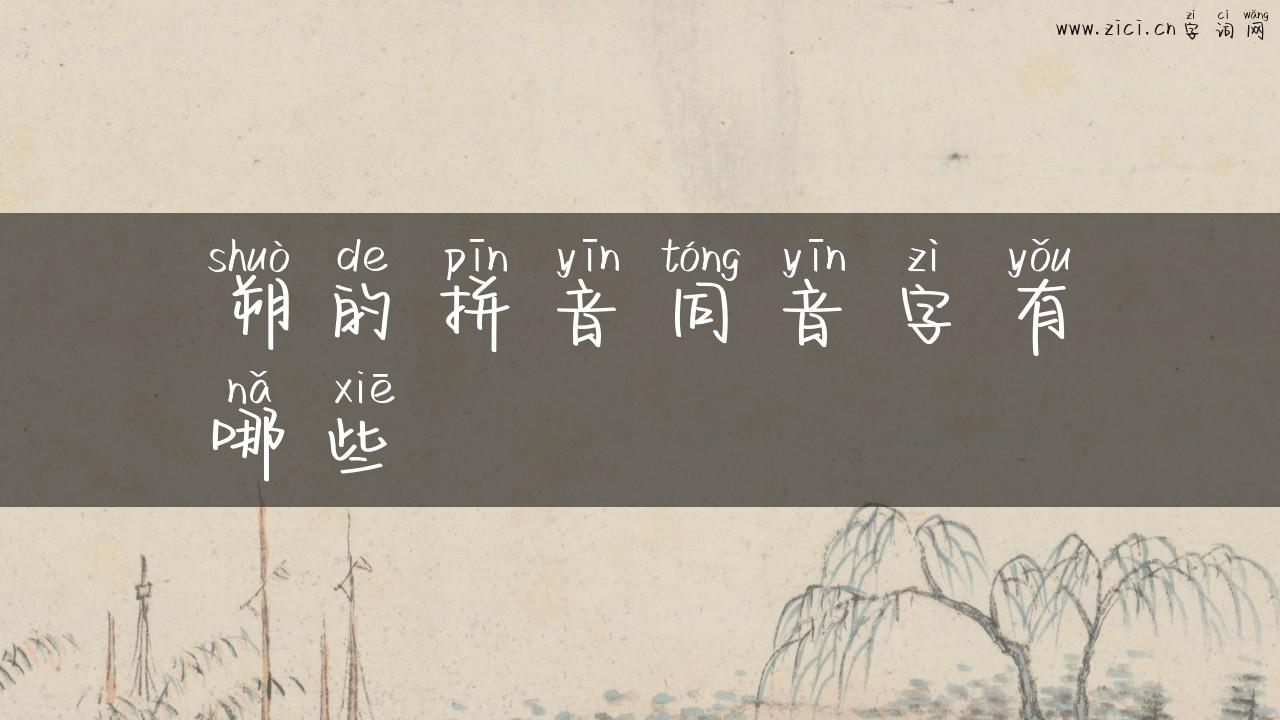 zì cí wǎng
www.zici.cn 字词网
shuò de pīn yīn tóng yīn zì yǒu
朔的拼音同音字有
nǎ xiē
哪些